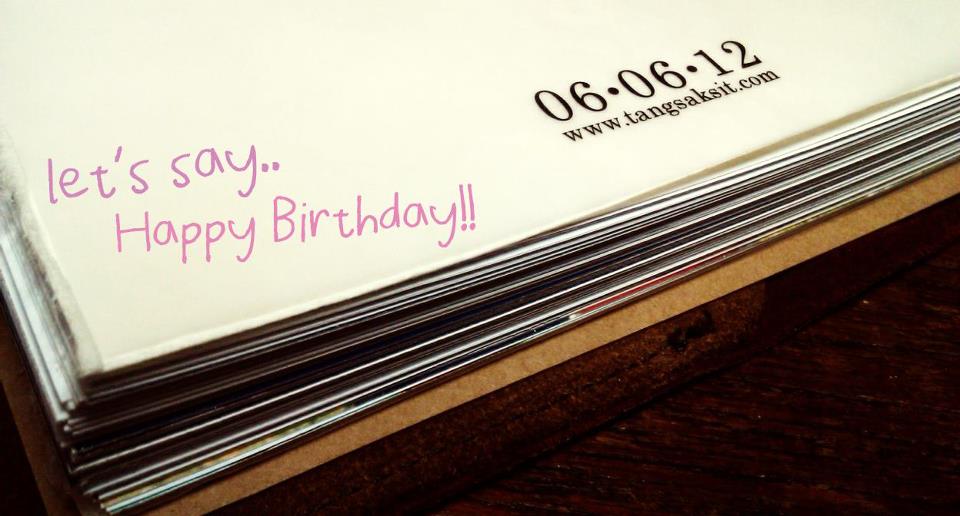 06•06•12
www.tangsaksit.com
let's say..
Happy Birthday!!